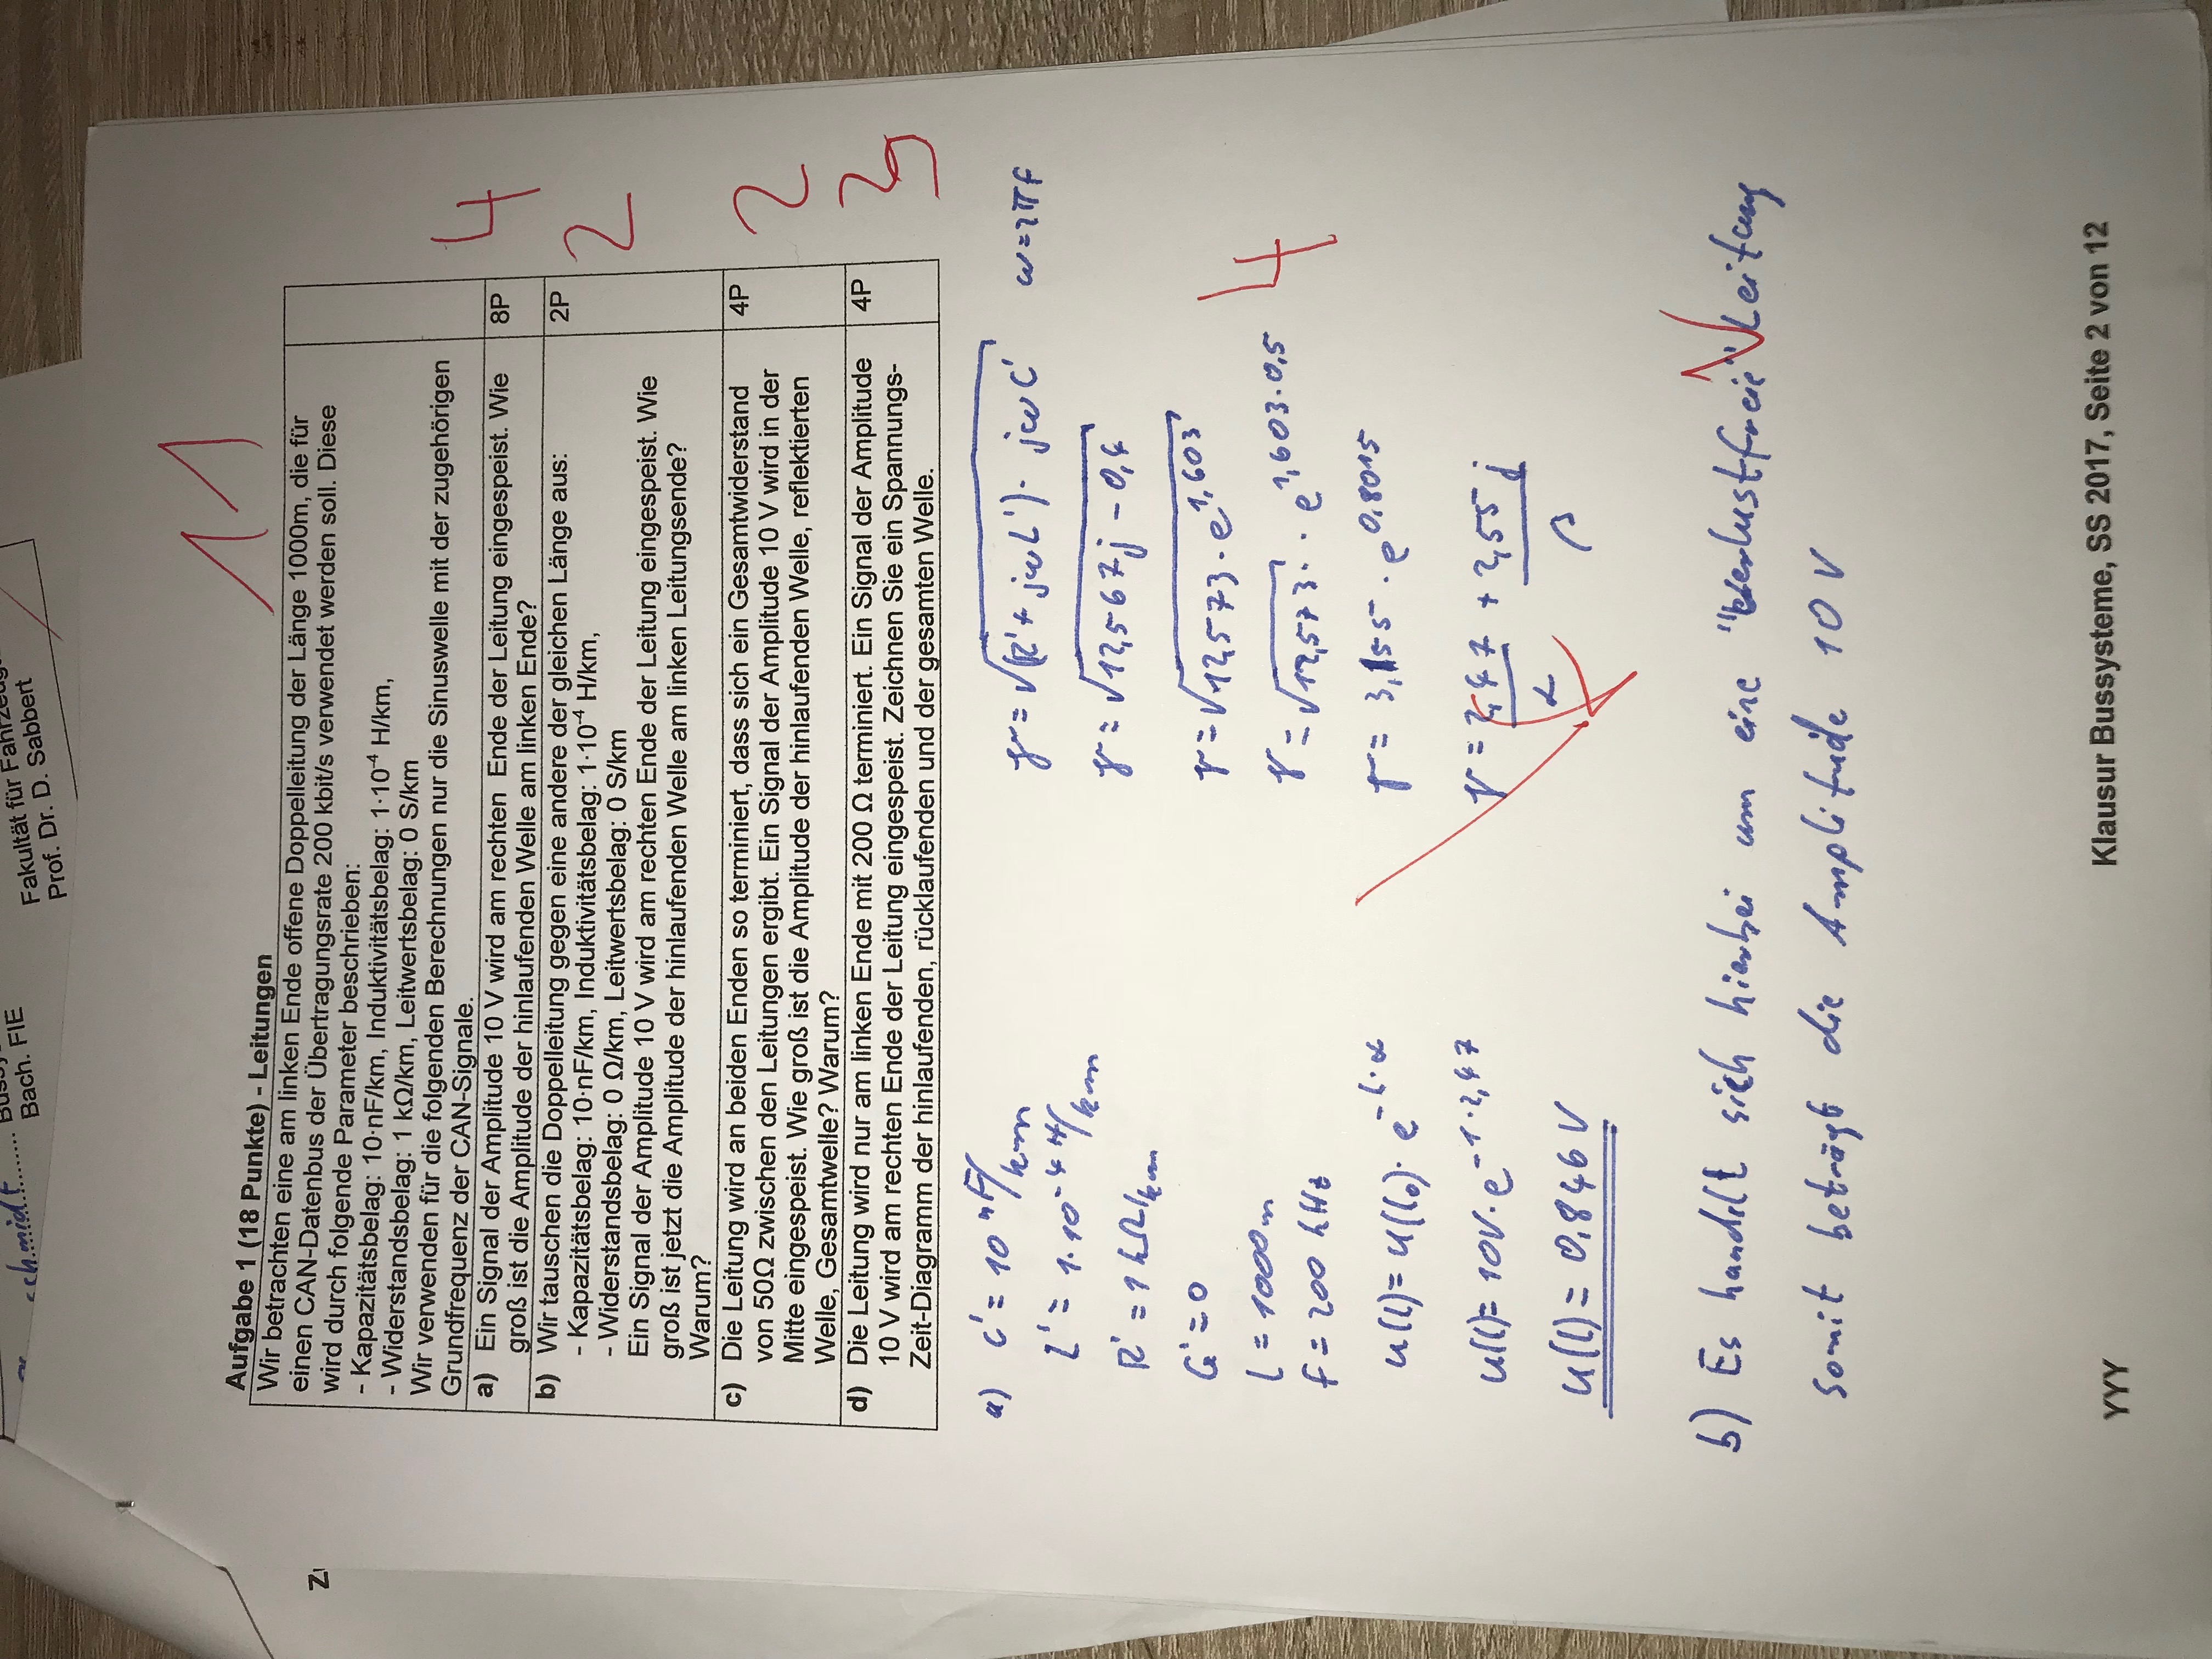 schmidt
Bach. FIE
Prof. Dr. D. Sabbert
11
Aufgabe 1 (18 Punkte) - Leitungen
Wir betrachten eine am linken Ende offene Doppelleitung der Länge 1000m, die für
einen CAN-Datenbus der Übertragungsrate 200 kbit/s verwendet werden soll. Diese
wird durch folgende Parameter beschrieben:
- Kapazitätsbelag: 10·nF/km, Induktivitätsbelag: 1·10⁻⁴ H/km,
- Widerstandsbelag: 1 kΩ/km, Leitwertsbelag: 0 S/km
Wir verwenden für die folgenden Berechnungen nur die Sinuswelle mit der zugehörigen
Grundfrequenz der CAN-Signale.
a) Ein Signal der Amplitude 10 V wird am rechten Ende der Leitung eingespeist. Wie 8P 4
groß ist die Amplitude der hinlaufenden Welle am linken Ende?
b) Wir tauschen die Doppelleitung gegen eine andere der gleichen Länge aus: 2P 2
- Kapazitätsbelag: 10·nF/km, Induktivitätsbelag: 1·10⁻⁴ H/km,
- Widerstandsbelag: 0 Ω/km, Leitwertsbelag: 0 S/km
Ein Signal der Amplitude 10 V wird am rechten Ende der Leitung eingespeist. Wie
groß ist jetzt die Amplitude der hinlaufenden Welle am linken Leitungsende?
Warum?
c) Die Leitung wird an beiden Enden so terminiert, dass sich ein Gesamtwiderstand 4P 2
von 50Ω zwischen den Leitungen ergibt. Ein Signal der Amplitude 10 V wird in der
Mitte eingespeist. Wie groß ist die Amplitude der hinlaufenden Welle, reflektierten
Welle, Gesamtwelle? Warum?
d) Die Leitung wird nur am linken Ende mit 200 Ω terminiert. Ein Signal der Amplitude 4P 3
10 V wird am rechten Ende der Leitung eingespeist. Zeichnen Sie ein Spannungs-
Zeit-Diagramm der hinlaufenden, rücklaufenden und der gesamten Welle.
a) C' = 10 nF/km
L' = 1·10⁻⁴ H/km
R' = 1 kΩ/km
G' = 0
l = 1000m
f = 200 kHz
u(l) = u(l₀)· e^-l·α
u(l) = 10V·e^-1·2,47
u(l) = 0,846 V
γ = √(R'+ jωL')· jωC' ω=2πf
γ = √12,567j - 0,4
γ = √12,573 · e^1,603
γ = √12,573 · e^1,603·0,5
4
γ = 3,155 · e^0,8015
γ = 2,47 + 2,55 j
α β
b) Es handelt sich hierbei um eine "verlustfreie" Leitung
somit beträgt die Amplitude 10 V
YYY
Klausur Bussysteme, SS 2017, Seite 2 von 12